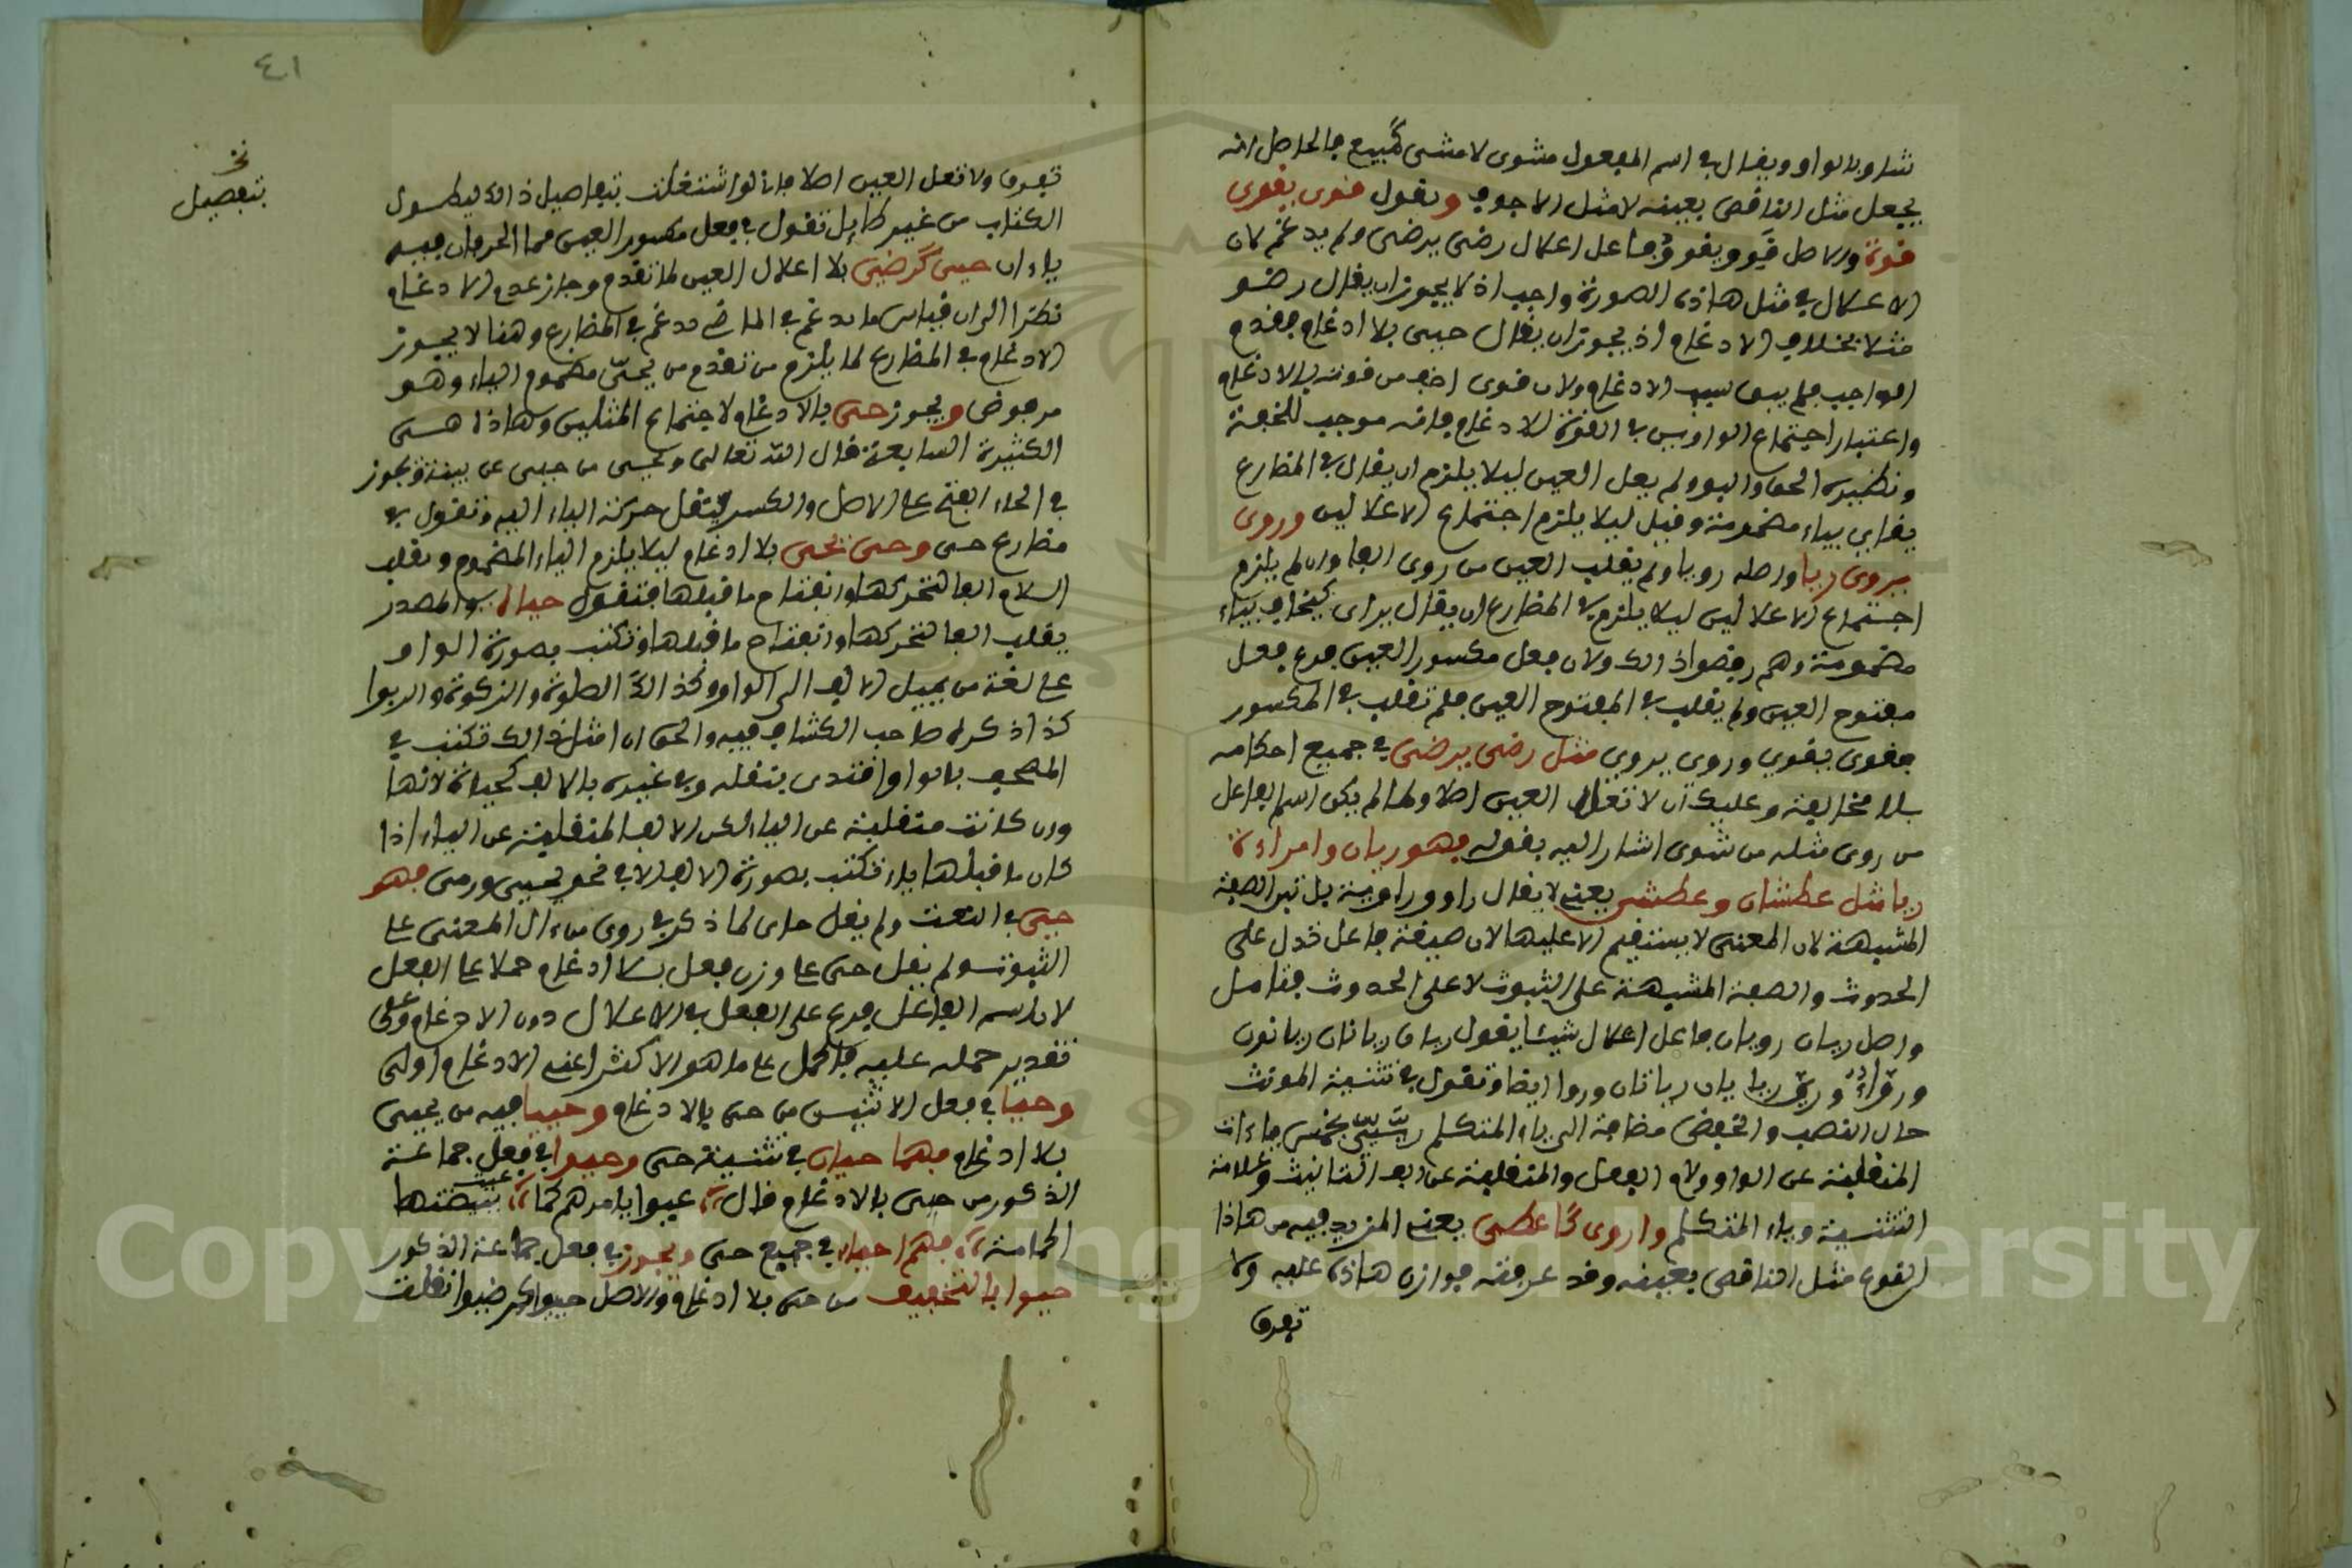 شاو بالواو ويقال في اسم المفعول مشوى لا مشى كمبيع فالحاصل انه
يجعل مثل الناقص بعينه لا مثل الاجوف وتقول قوى يقوى
قوة والاصل قَوِوَ يقوَوُ فاعل اعلال رضى يرضى ولم يدغم لان
الاعلال في مثل هاذه الصورة واجب اذ لا يجوز ان يقال رضو
مثلا بخلاف الادغام اذ يجوز ان يقال حيى بلا ادغام فقدم
الواجب فلم يبق سبب الادغام ولان قوى اخف من قوّ بالادغام
واعتبار اجتماع الواوين في القوة للادغام فانه موجب للخفة
ونظيره الجو والبو ولم يعل العين ليلا يلزم ان يقال في المضارع
يقاي بياء مضمومة وقيل ليلا يلزم اجتماع الاعلالين وروى
يروى ريا واصله رويا ولم يقلب العين من روى الفا وان لم يلزم
اجتماع الاعلالين ليلا يلزم في المضارع ان يقال يراى كيخاف بياء
مضمومة وهم رفضوا ذالك ولان فعل مكسور العين فرع فعل
مفتوح العين ولم يقلب في المفتوح العين فلم تقلب في المكسور
فقوى يقوى وروى يروى مثل رضى يرضى في جميع احكامه
بلا مخالفة وعليك ان لا تعل العين اصلا ولما لم يكن اسم الفاعل
من روى مثله من شوى اشار اليه بقوله فهو ريان وامراءة
ريا مثل عطشان وعطشى يعني لا يقال راو وراوية بل تبنى الصفة
المشبهة لان المعنى لا يستقيم الا عليها لان صيغة فاعل تدل على
الحدوث والصفة المشبهة على الثبوت لا على الحدوث فتامل
واصل ريان رويان فاعل اعلال شيئا يقول ريان ريانان ريانون
ورواء وريّ ريا ريان رياتان وروا ايضا وتقول في تثنية المونث
حال النصب والخفض مضافة الى ياء المتكلم رييّيّ بخمس ياءات
المنقلبة عن الواو ولام الفعل والمنقلبة عن الف التانيث وعلامة
التثنية وياء المتكلم واروى كاعطى يعني المزيد فيه من هاذا
النوع مثل الناقص بعينه وقد عرفته فوازن هاذه عليه ولا
تفرق
٤١
تفرق ولا تعل العين اصلا فانا لو اشتغلت بتفاصيل ذالك ليطول
نخ
بتفصيل
الكتاب من غير طايل تقول في فعل مكسور العين مما الحرفان فيه
ياءان حيى كرضى بلا اعلال العين لما تقدم وجاز عدم الادغام
نظرا الى ان قياس ما يدغم في الماضي يدغم في المضارع وهنا لا يجوز
الادغام في المضارع لما يلزم من تقدم من يحيّ مضموم الياء وهو
مرفوض ويجوز حيّ بالادغام لاجتماع المثلين وهاذا هي
الكثيرة الشايعة قال الله تعالى ويحيى من حيى عن بينة ويجوز
في الحاء الفتح على الاصل والكسر بنقل حركة الياء اليه وتقول في
مضارع حيى وحى يحيى بلا ادغام ليلا يلزم الياء المضموم وتقلب
اللام الفا لتحركها وانفتاح ما قبلها فتقول حياة في المصدر
بقلب الفا لتحركها وانفتاح ما قبلها وتكتب بصورة الواو
على لغة من يميل الالف الى الواو وكذالك الصلوة والزكوة والربوا
كذا ذكره صاحب الكشاف فيه والحق ان امثل ذالك تكتب في
المصحف بالواو اقتدى بنقله وفي غيره بالالف كحياة لانها
وان كانت منقلبة عن الياء لكن الالف المنقلبة عن الياء اذا
كان ما قبلها ياء تكتب بصورة الالف الا في نحو يحيى وريى فهو
حيى في النعت ولم يقل حاى لما ذكر في روى من ان المعنى على
الثبوت ولم يقل حيى على وزن فعل بلا ادغام حملا على الفعل
لان اسم الفاعل فرع على الفعل في الاعلال دون الادغام وعلى
تقدير حمله عليه فالحمل على ما هو الاكثر اعني الادغام اولى
وحيا في فعل الاثنين من حى بالادغام وحييا فيه من يحيى
بلا ادغام فهما حيان في تثنية حى وحيوا في فعل جماعة
الذكور من حيى بالادغام قال عيوا بامرهم كما عيت ببيضتها
الحمامة فهم احياء في جميع حى ويجوز في فعل جماعة الذكور
حيوا بالتخفيف من حيى بلا ادغام والاصل حييوا كرضيوا نقلت
Copyright © King Saud University